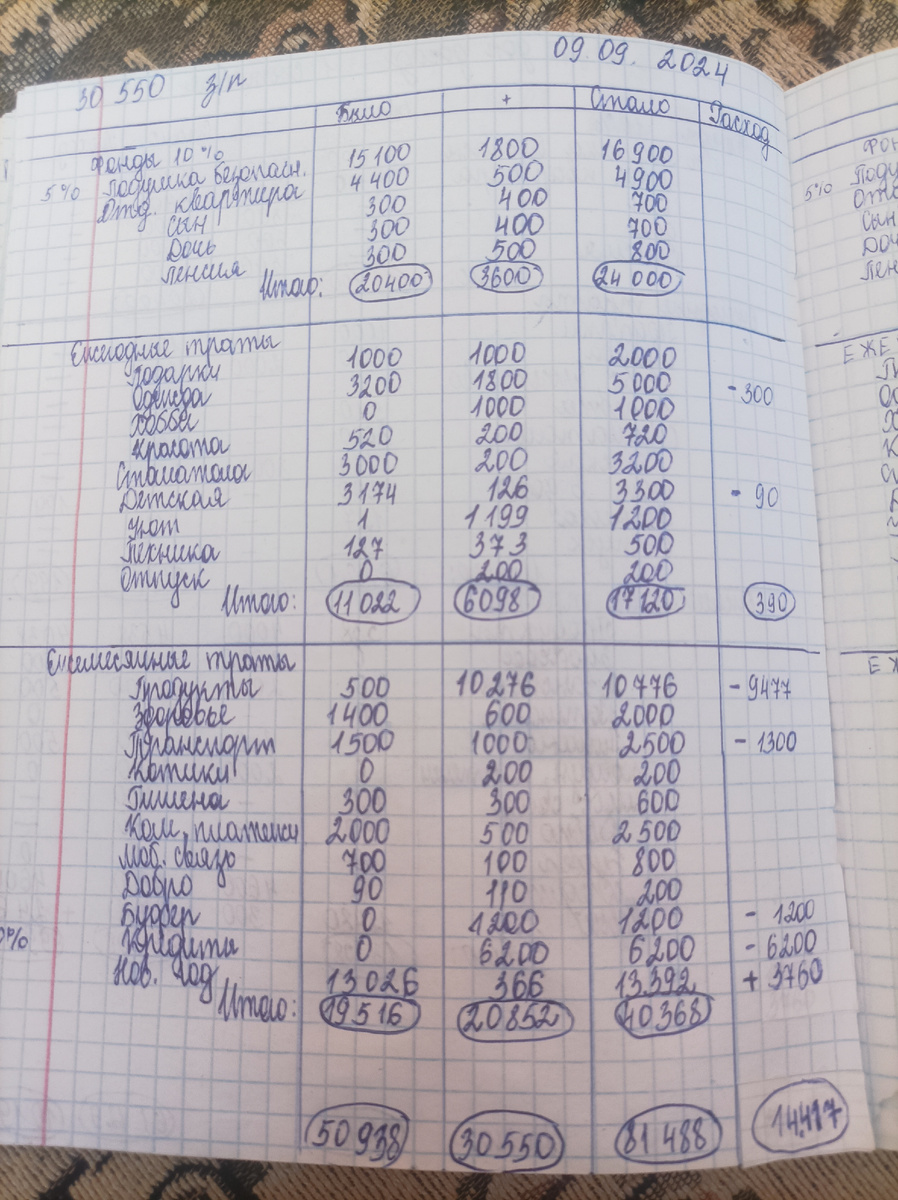 09.09.2024
30 550 З/п
Было + Стало Расход
Фонды 10%
Подушка безопасн. 15100 1800 16 900
5% Отд. квартира 4 400 500 4900
Сын 300 400 700
Дочь 300 400 700
Пенсия 300 500 800
Итого: 20400 3600 24 000
Ежегодные траты
Подарки 1000 1000 2000
Одежда 3200 1800 5000 - 300
Хобби 0 1000 1000
Красота 520 200 720
Стоматолог 3000 200 3200
Детская 3174 126 3300 - 90
Уют 1 1199 1200
Техника 127 373 500
Отпуск 0 200 200
Итого: 11 022 6098 17120 390
Ежемесячные траты
Продукты 500 10 276 10 776 - 9477
Здоровье 1400 600 2000
Транспорт 1500 1000 2500 - 1300
Котики 0 200 200
Гигиена 300 300 600
Ком. платежи 2000 500 2 500
Моб. связь 700 100 800
Добро 90 110 200
Буфер 0 1200 1200 - 1200
0% Кредиты 0 6200 6200 - 6200
Нов. год 13 026 366 13.392 + 3760
Итого: 19 516 20 852 40 368
50 938 30 550 81 488 14.417
5%
Сын